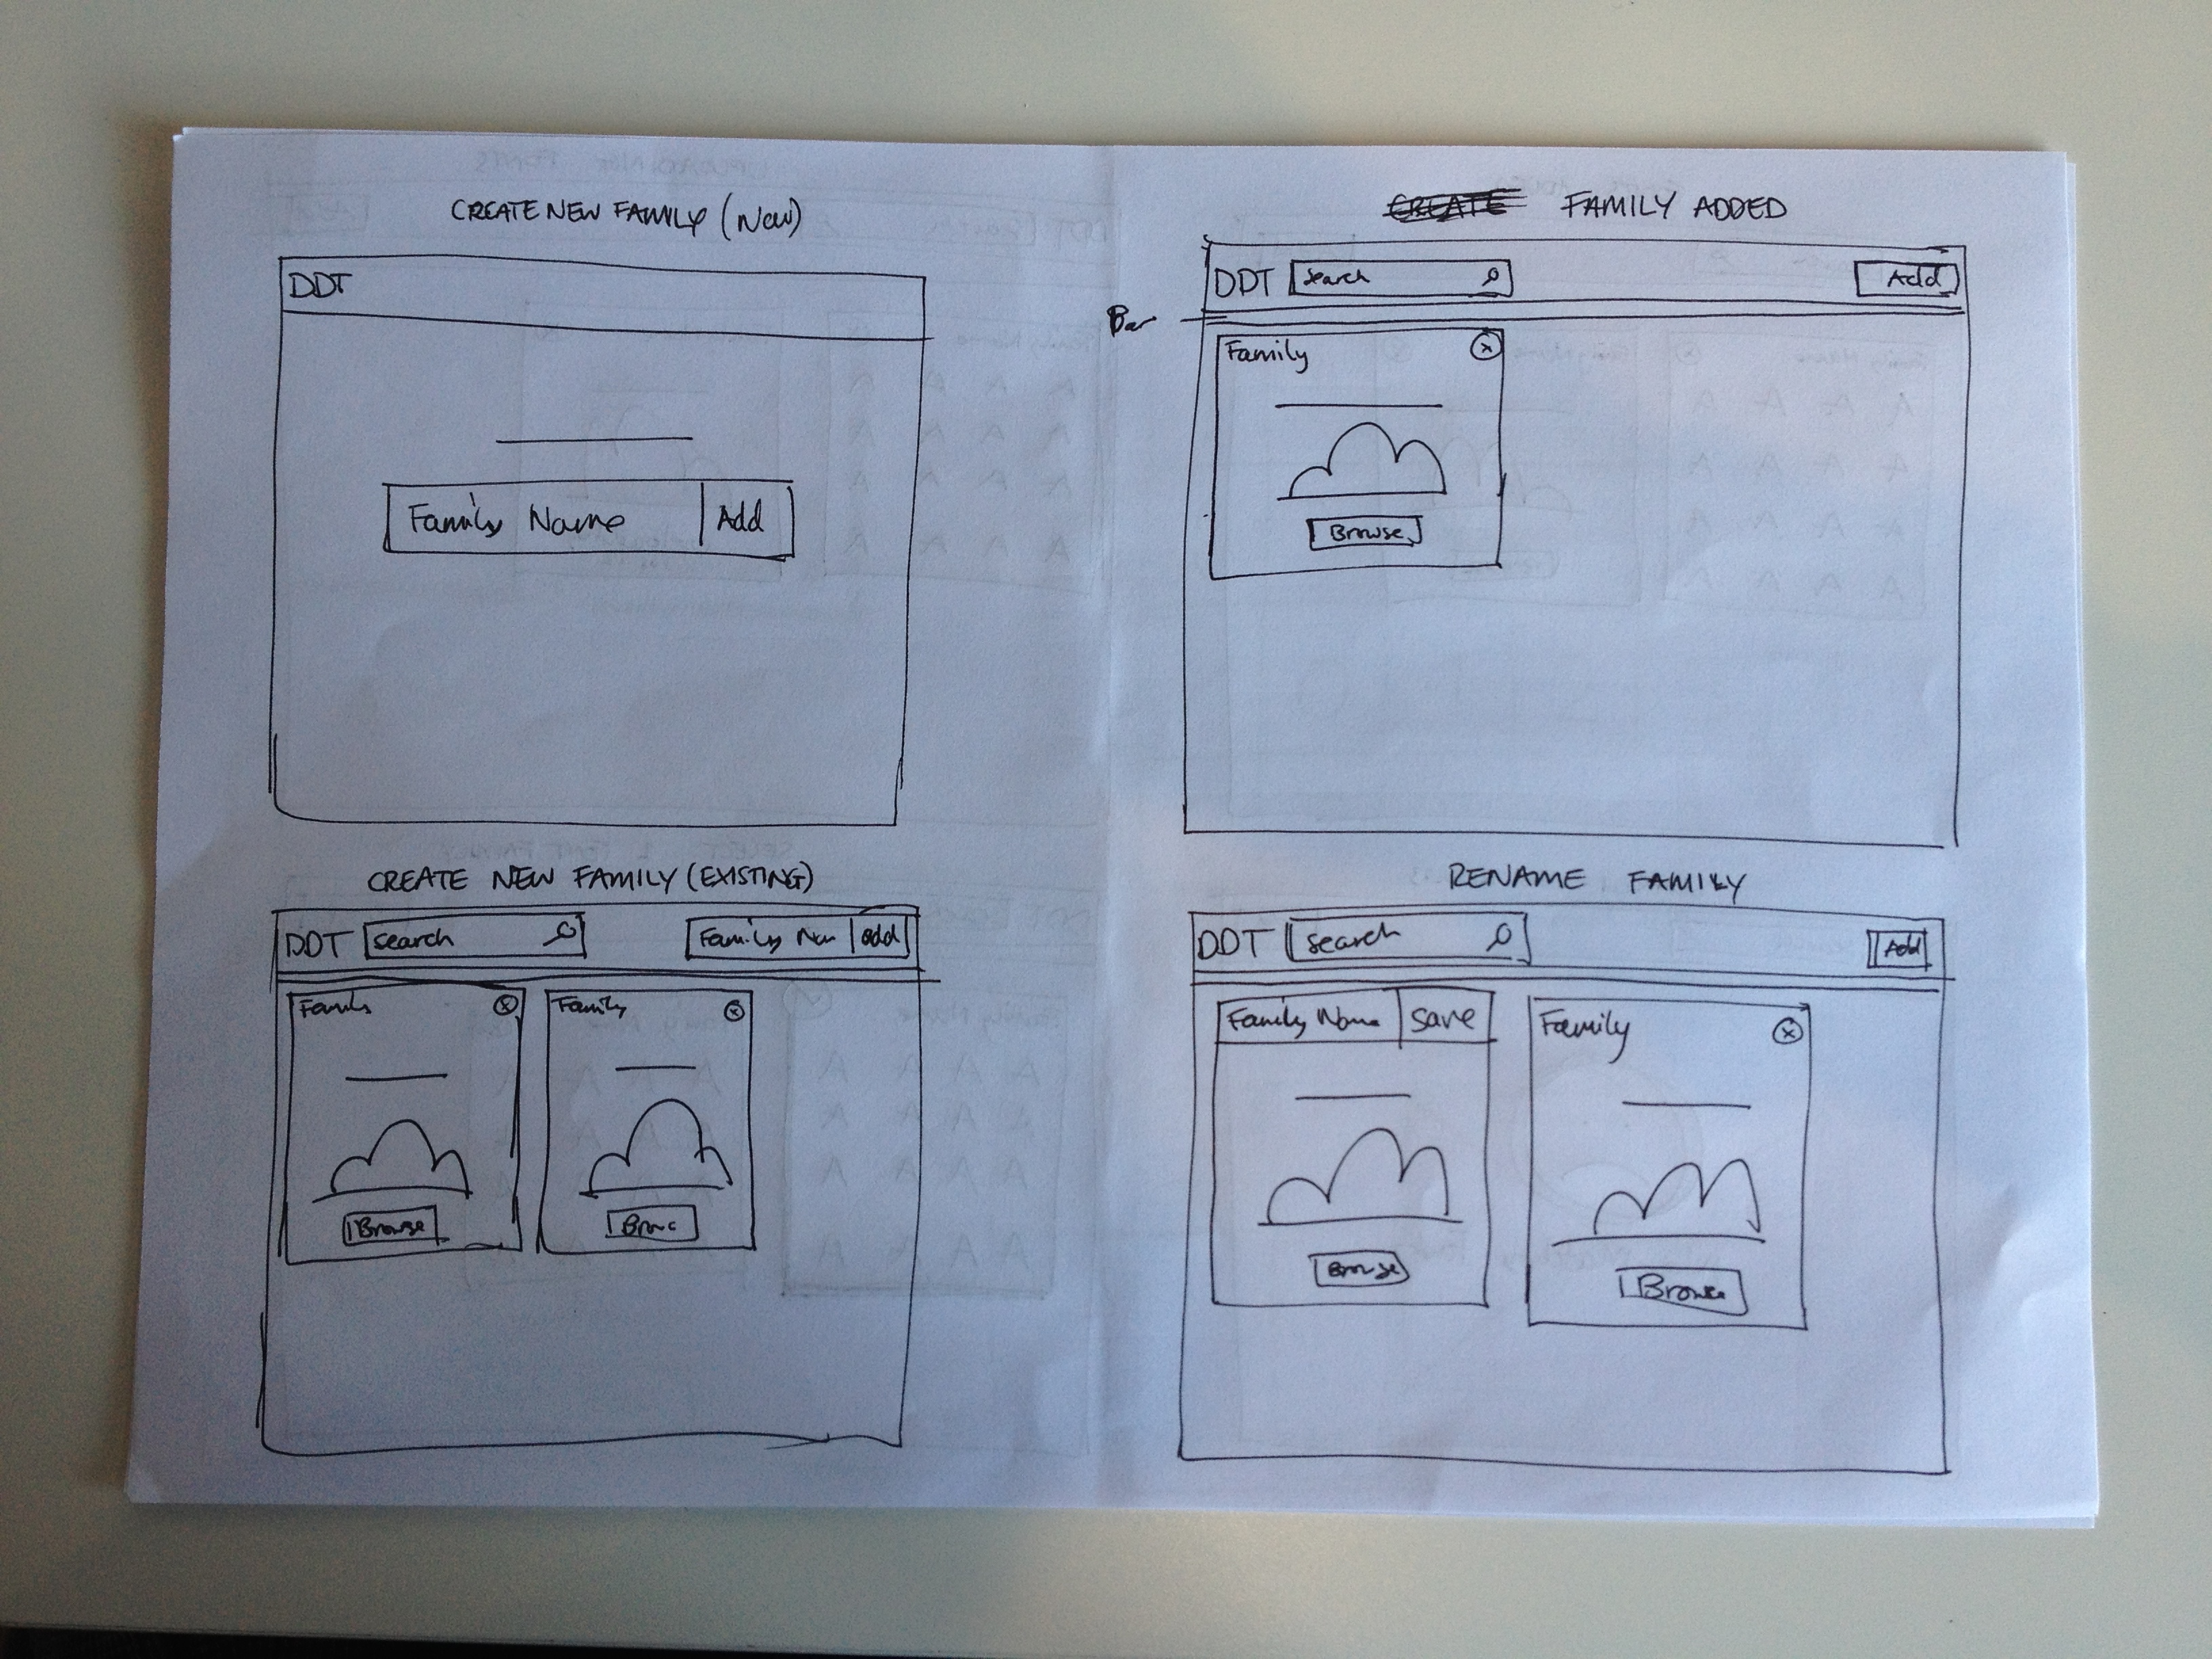 CREATE NEW FAMILY (New)
DDT
Family Name Add
CREATE FAMILY ADDED
DDT Search Add
Bar
Family x
Browse
CREATE NEW FAMILY (EXISTING)
DDT Search Family Nam add
Family x Family x
Browse Brow
RENAME FAMILY
DDT Search Add
Family Name Save Family x
Browse Browse